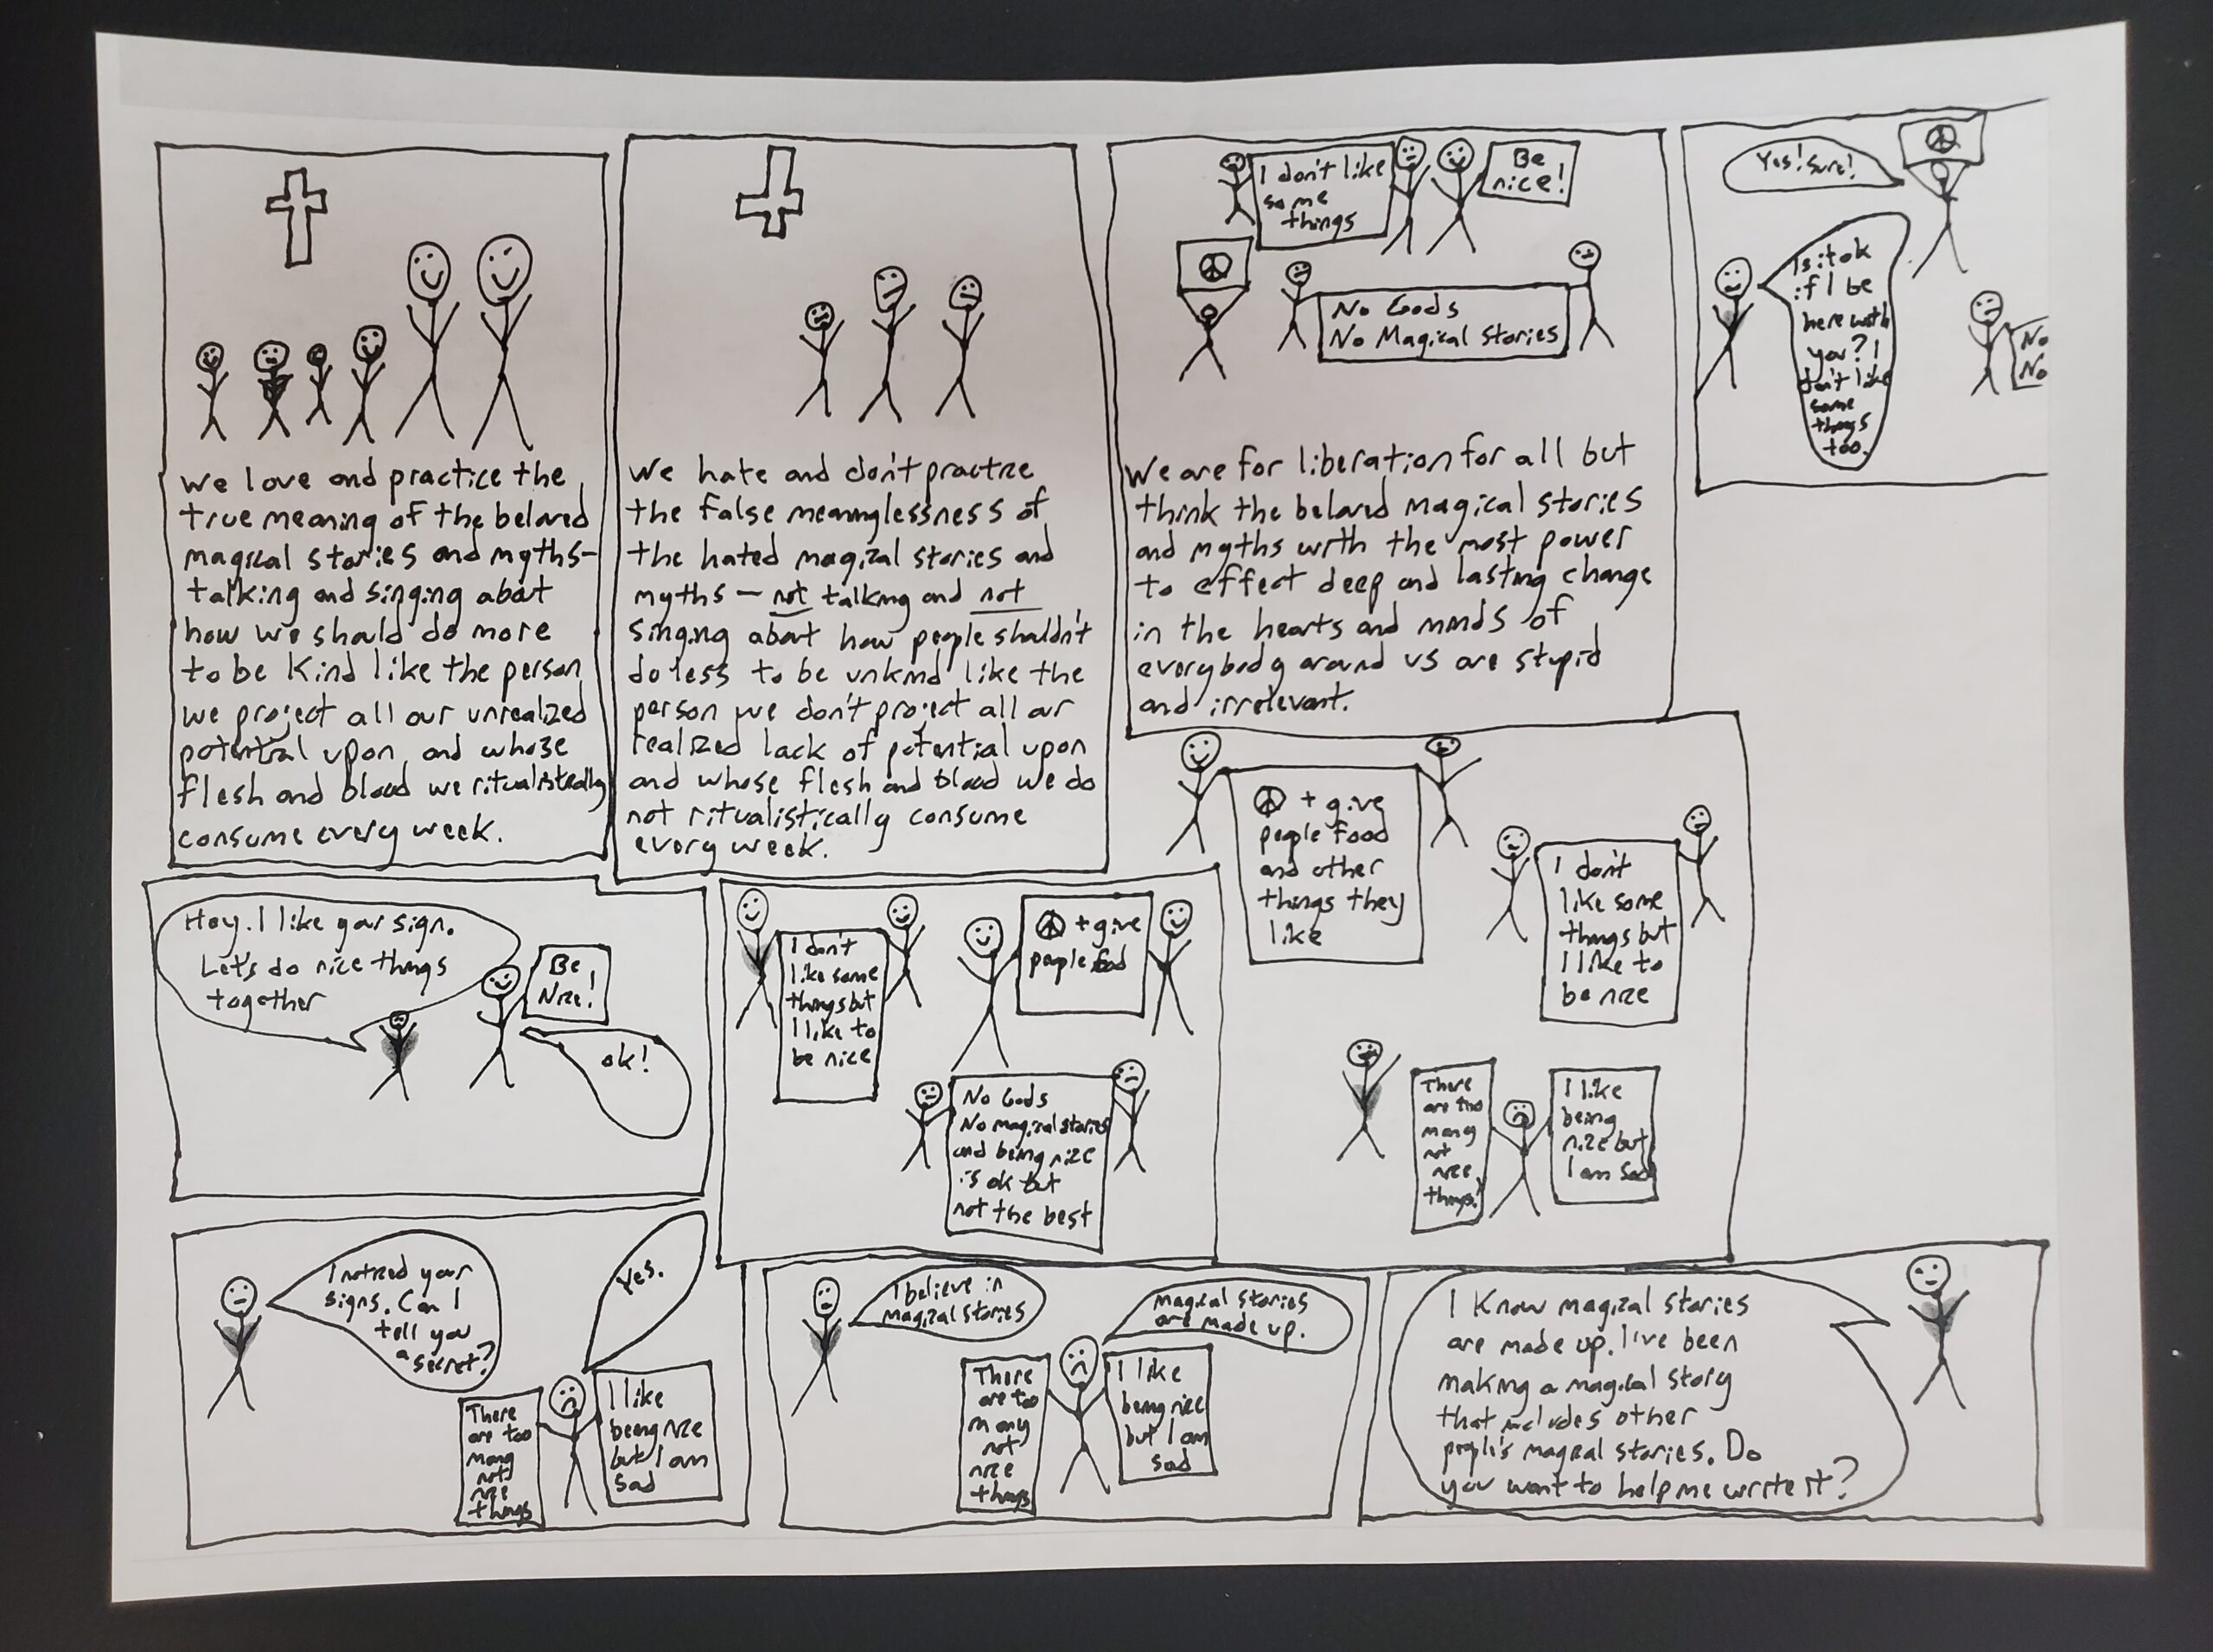 We love and practice the
true meaning of the beloved
magical stories and myths-
talking and singing about
how we should do more
to be kind like the person
we project all our unrealized
potential upon and whose
flesh and blood we ritualistically
consume every week.
We hate and don't practice
the false meaninglessness of
the hated magical stories and
myths - not talking and not
singing about how people shouldn't
do less to be unkind like the
person we don't project all our
realized lack of potential upon
and whose flesh and blood we do
not ritualistically consume
every week.
I don't like
some
things
Be
nice!
No Gods
No Magical Stories
We are for liberation for all but
think the beloved magical stories
and myths with the most power
to effect deep and lasting change
in the hearts and minds of
everybody around us are stupid
and irrelevant.
Yes! Sure!
Is it ok
if I be
here with
you? I
don't like
some
things
too.
No
No
Hey. I like your sign.
Let's do nice things
together
Be
Nice!
ok!
I don't
like some
things but
I like to
be nice
+ give
people food
No Gods
No magical stories
and being nice
is ok but
not the best
+ give
people food
and other
things they
like
I don't
like some
things but
I like to
be nice
There
are too
many
not
nice
things!
I like
being
nice but
I am sad
I noticed your
signs. Can I
tell you
a secret?
Yes.
There
are too
many
not
nice
things
I like
being nice
but I am
sad
I believe in
magical stories
Magical stories
are made up.
There
are too
many
not
nice
things
I like
being nice
but I am
sad
I know magical stories
are made up. I've been
making a magical story
that includes other
people's magical stories. Do
you want to help me write it?